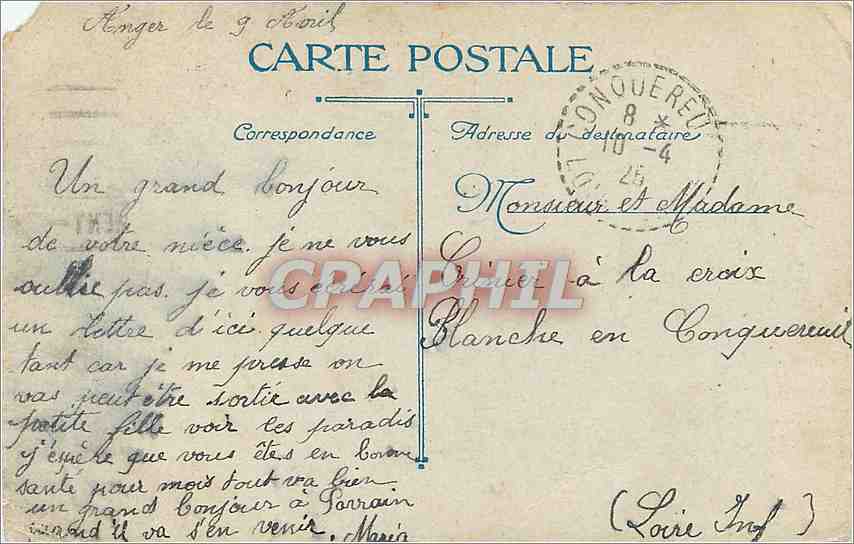 Anger le 9 Avril
CARTE POSTALE
Correspondance
Un grand bonjour
de votre nièce. je ne vous
oublie pas. je vous écrirai
un lettre d'ici quelque
tant car je me presse on
vas peut être sortie avec la
petite fille voir les paradis
j'éspère que vous êtes en bonne
santé pour mois tout va bien
un grand bonjour à Parrain
quand il va s'en venir. Maria
Adresse du destinataire
CONQUEREU
8 *
10 -4
26
Monsieur et Madame
à la croix
Blanche en Conquereuil
(Loire Inf)
CPAPHIL